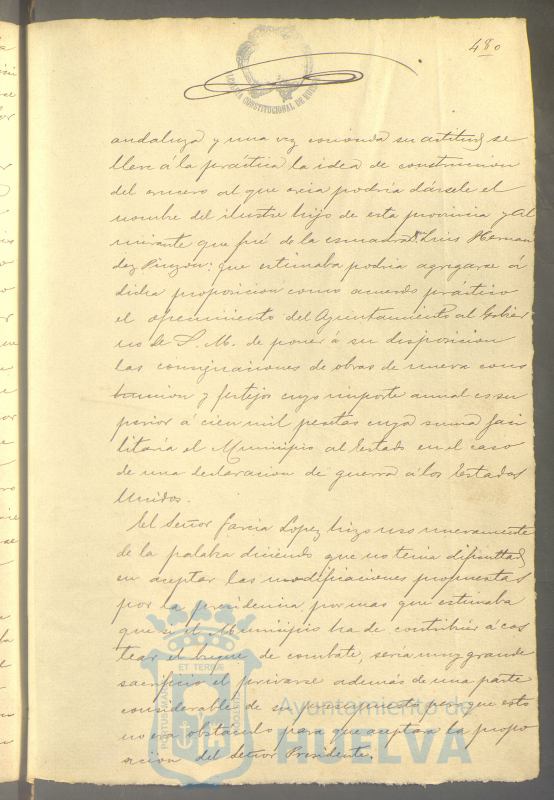 480
ALCALDIA CONSTITUCIONAL DE HUELVA
andaluza y una vez conocida su actitud se
lleve á la práctica la idea de construccion
del crucero al que creia podria dársele el
nombre del ilustre hijo de esta provincia y Al
mirante que fué de la escuadra Dn Luis Hernan
dez Pinzon: que estimaba podria agregarse á
dicha proposicion como acuerdo práctico
el ofrecimiento del Ayuntamiento al Gobier
no de S. M. de poner á su disposicion
las consignaciones de obras de nueva cons
truccion y festejos cuyo importe anual es su
perior á cien mil pesetas cuya suma faci
litaria el Municipio al Estado en el caso
de una declaracion de guerra á los Estados
Unidos.
El Señor Garcia Lopez hizo uso nuevamente
de la palabra diciendo que no tenia dificultad
en aceptar las modificaciones propuestas
por la presidencia, por mas que estimaba
que si el Municipio ha de contribuir á cos
tear el buque de combate, seria muy grande
sacrificio el privarse además de una parte
considerable de su presupuesto pero que esto
no era obstáculo para que aceptara la propo
sicion del Señor Presidente.
PORTUS MARIS ET TERRAE CUSTODIA
Ayuntamiento de
HUELVA